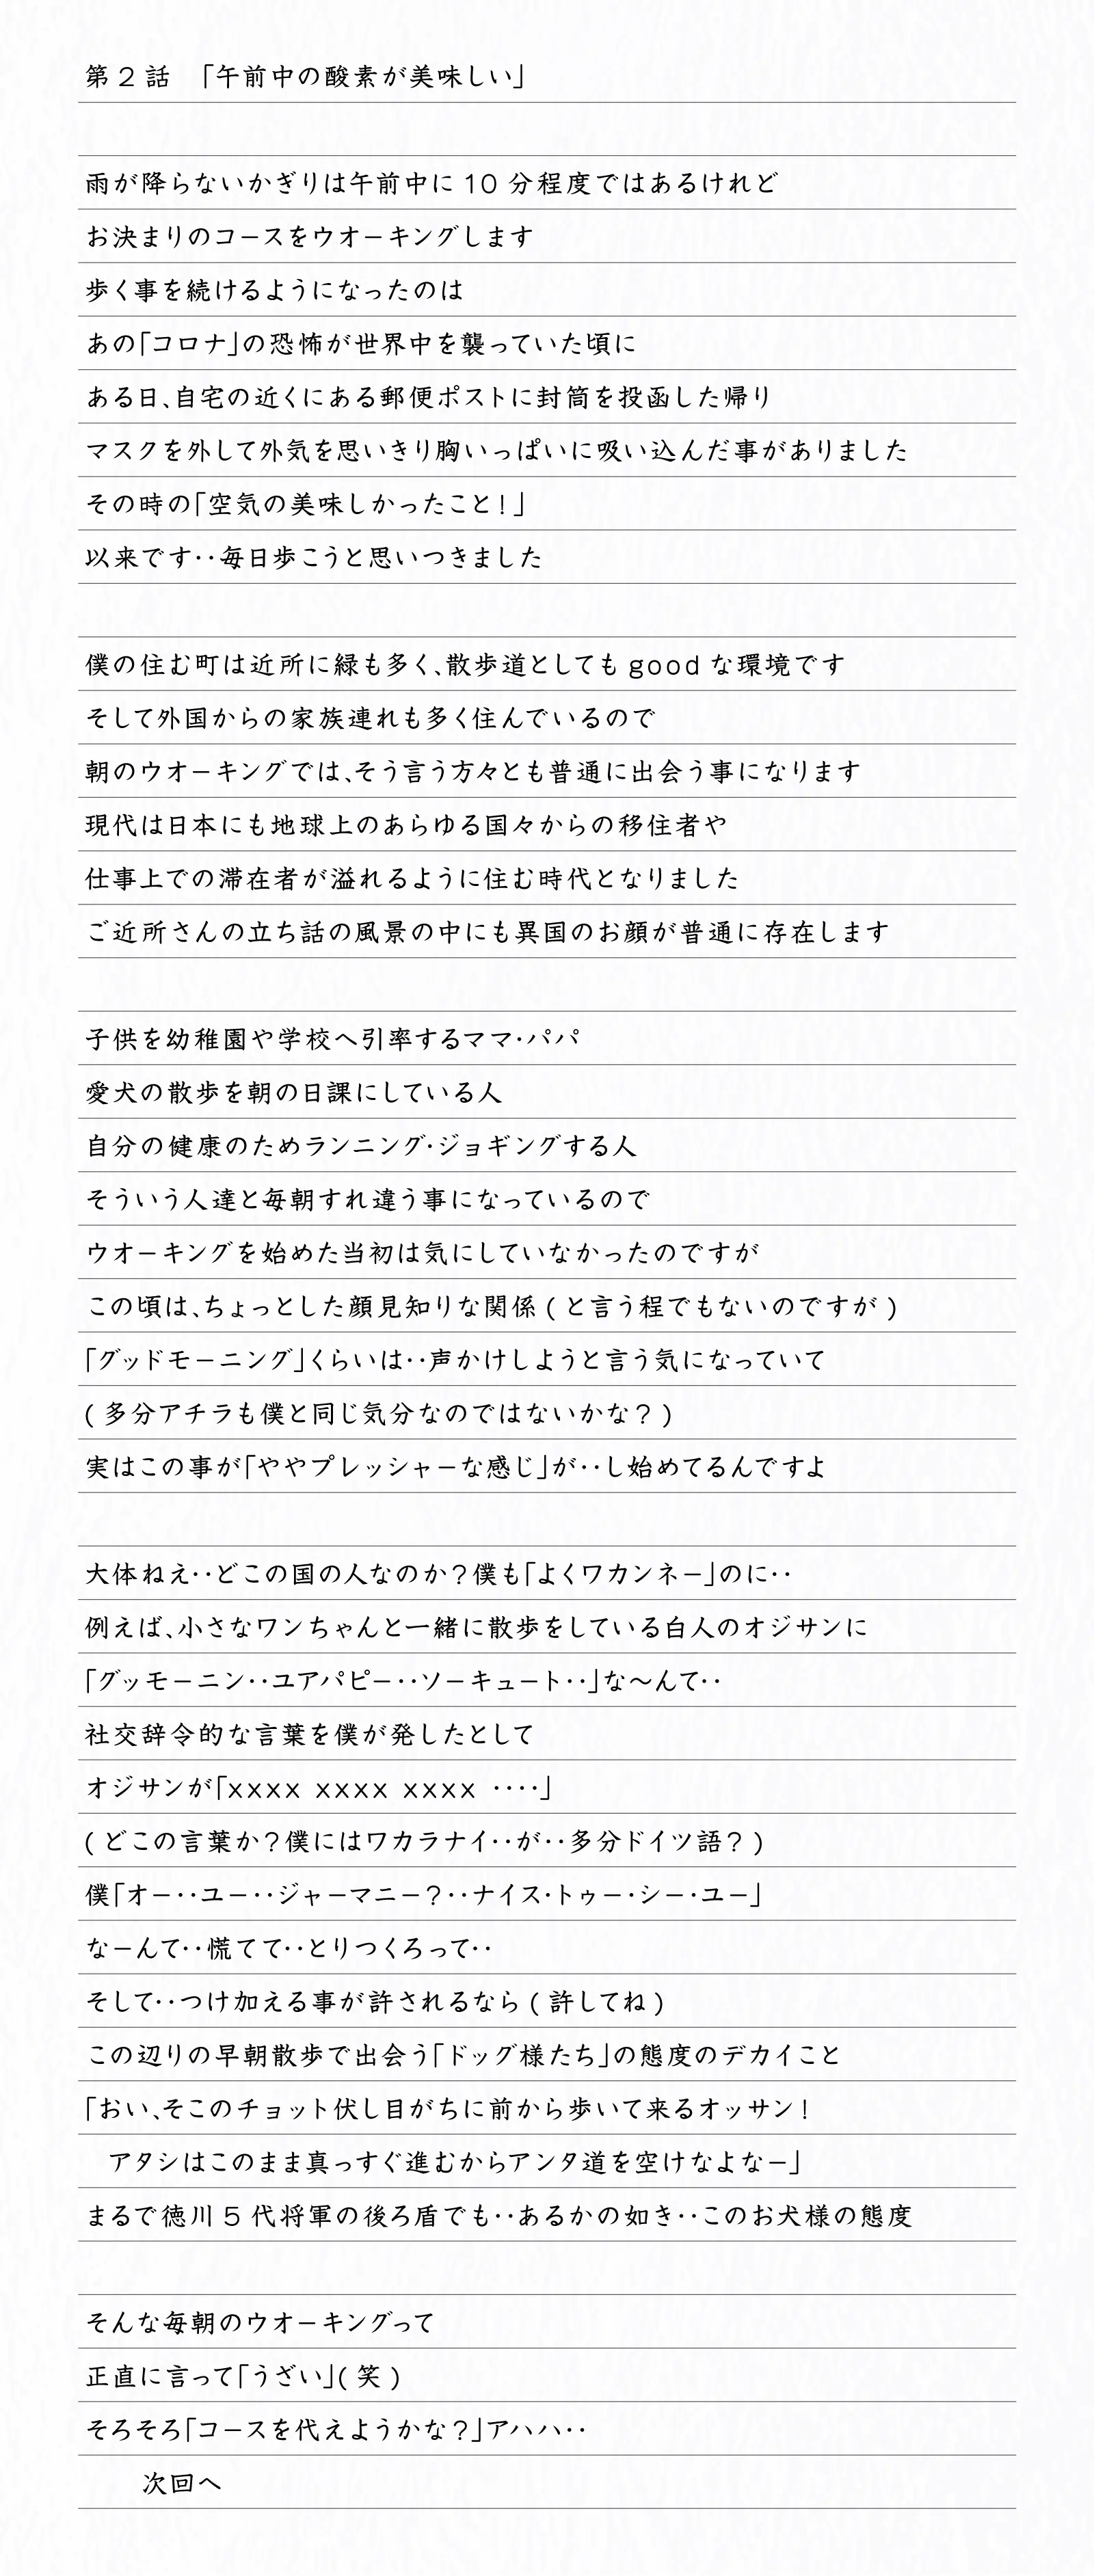 第2話　「午前中の酸素が美味しい」
雨が降らないかぎりは午前中に10分程度ではあるけれど
お決まりのコースをウオーキングします
歩く事を続けるようになったのは
あの「コロナ」の恐怖が世界中を襲っていた頃に
ある日、自宅の近くにある郵便ポストに封筒を投函した帰り
マスクを外して外気を思いきり胸いっぱいに吸い込んだ事がありました
その時の「空気の美味しかったこと！」
以来です‥毎日歩こうと思いつきました
僕の住む町は近所に緑も多く、散歩道としてもgoodな環境です
そして外国からの家族連れも多く住んでいるので
朝のウオーキングでは、そう言う方々とも普通に出会う事になります
現代は日本にも地球上のあらゆる国々からの移住者や
仕事上での滞在者が溢れるように住む時代となりました
ご近所さんの立ち話の風景の中にも異国のお顔が普通に存在します
子供を幼稚園や学校へ引率するママ・パパ
愛犬の散歩を朝の日課にしている人
自分の健康のためランニング・ジョギングする人
そういう人達と毎朝すれ違う事になっているので
ウオーキングを始めた当初は気にしていなかったのですが
この頃は、ちょっとした顔見知りな関係(と言う程でもないのですが)
「グッドモーニング」くらいは‥声かけしようと言う気になっていて
(多分アチラも僕と同じ気分なのではないかな？)
実はこの事が「ややプレッシャーな感じ」が‥し始めてるんですよ
大体ねえ‥どこの国の人なのか？僕も「よくワカンネー」のに‥
例えば、小さなワンちゃんと一緒に散歩をしている白人のオジサンに
「グッモーニン‥ユアパピー‥ソーキュート‥」な～んて‥
社交辞令的な言葉を僕が発したとして
オジサンが「xxxx xxxx xxxx ‥‥」
(どこの言葉か？僕にはワカラナイ‥が‥多分ドイツ語？)
僕「オー‥ユー‥ジャーマニー？‥ナイス・トゥー・シー・ユー」
なーんて‥慌てて‥とりつくろって‥
そして‥つけ加える事が許されるなら(許してね)
この辺りの早朝散歩で出会う「ドッグ様たち」の態度のデカイこと
「おい、そこのチョット伏し目がちに前から歩いて来るオッサン！
　アタシはこのまま真っすぐ進むからアンタ道を空けなよなー」
まるで徳川5代将軍の後ろ盾でも‥あるかの如き‥このお犬様の態度
そんな毎朝のウオーキングって
正直に言って「うざい」(笑)
そろそろ「コースを代えようかな？」アハハ‥
次回へ